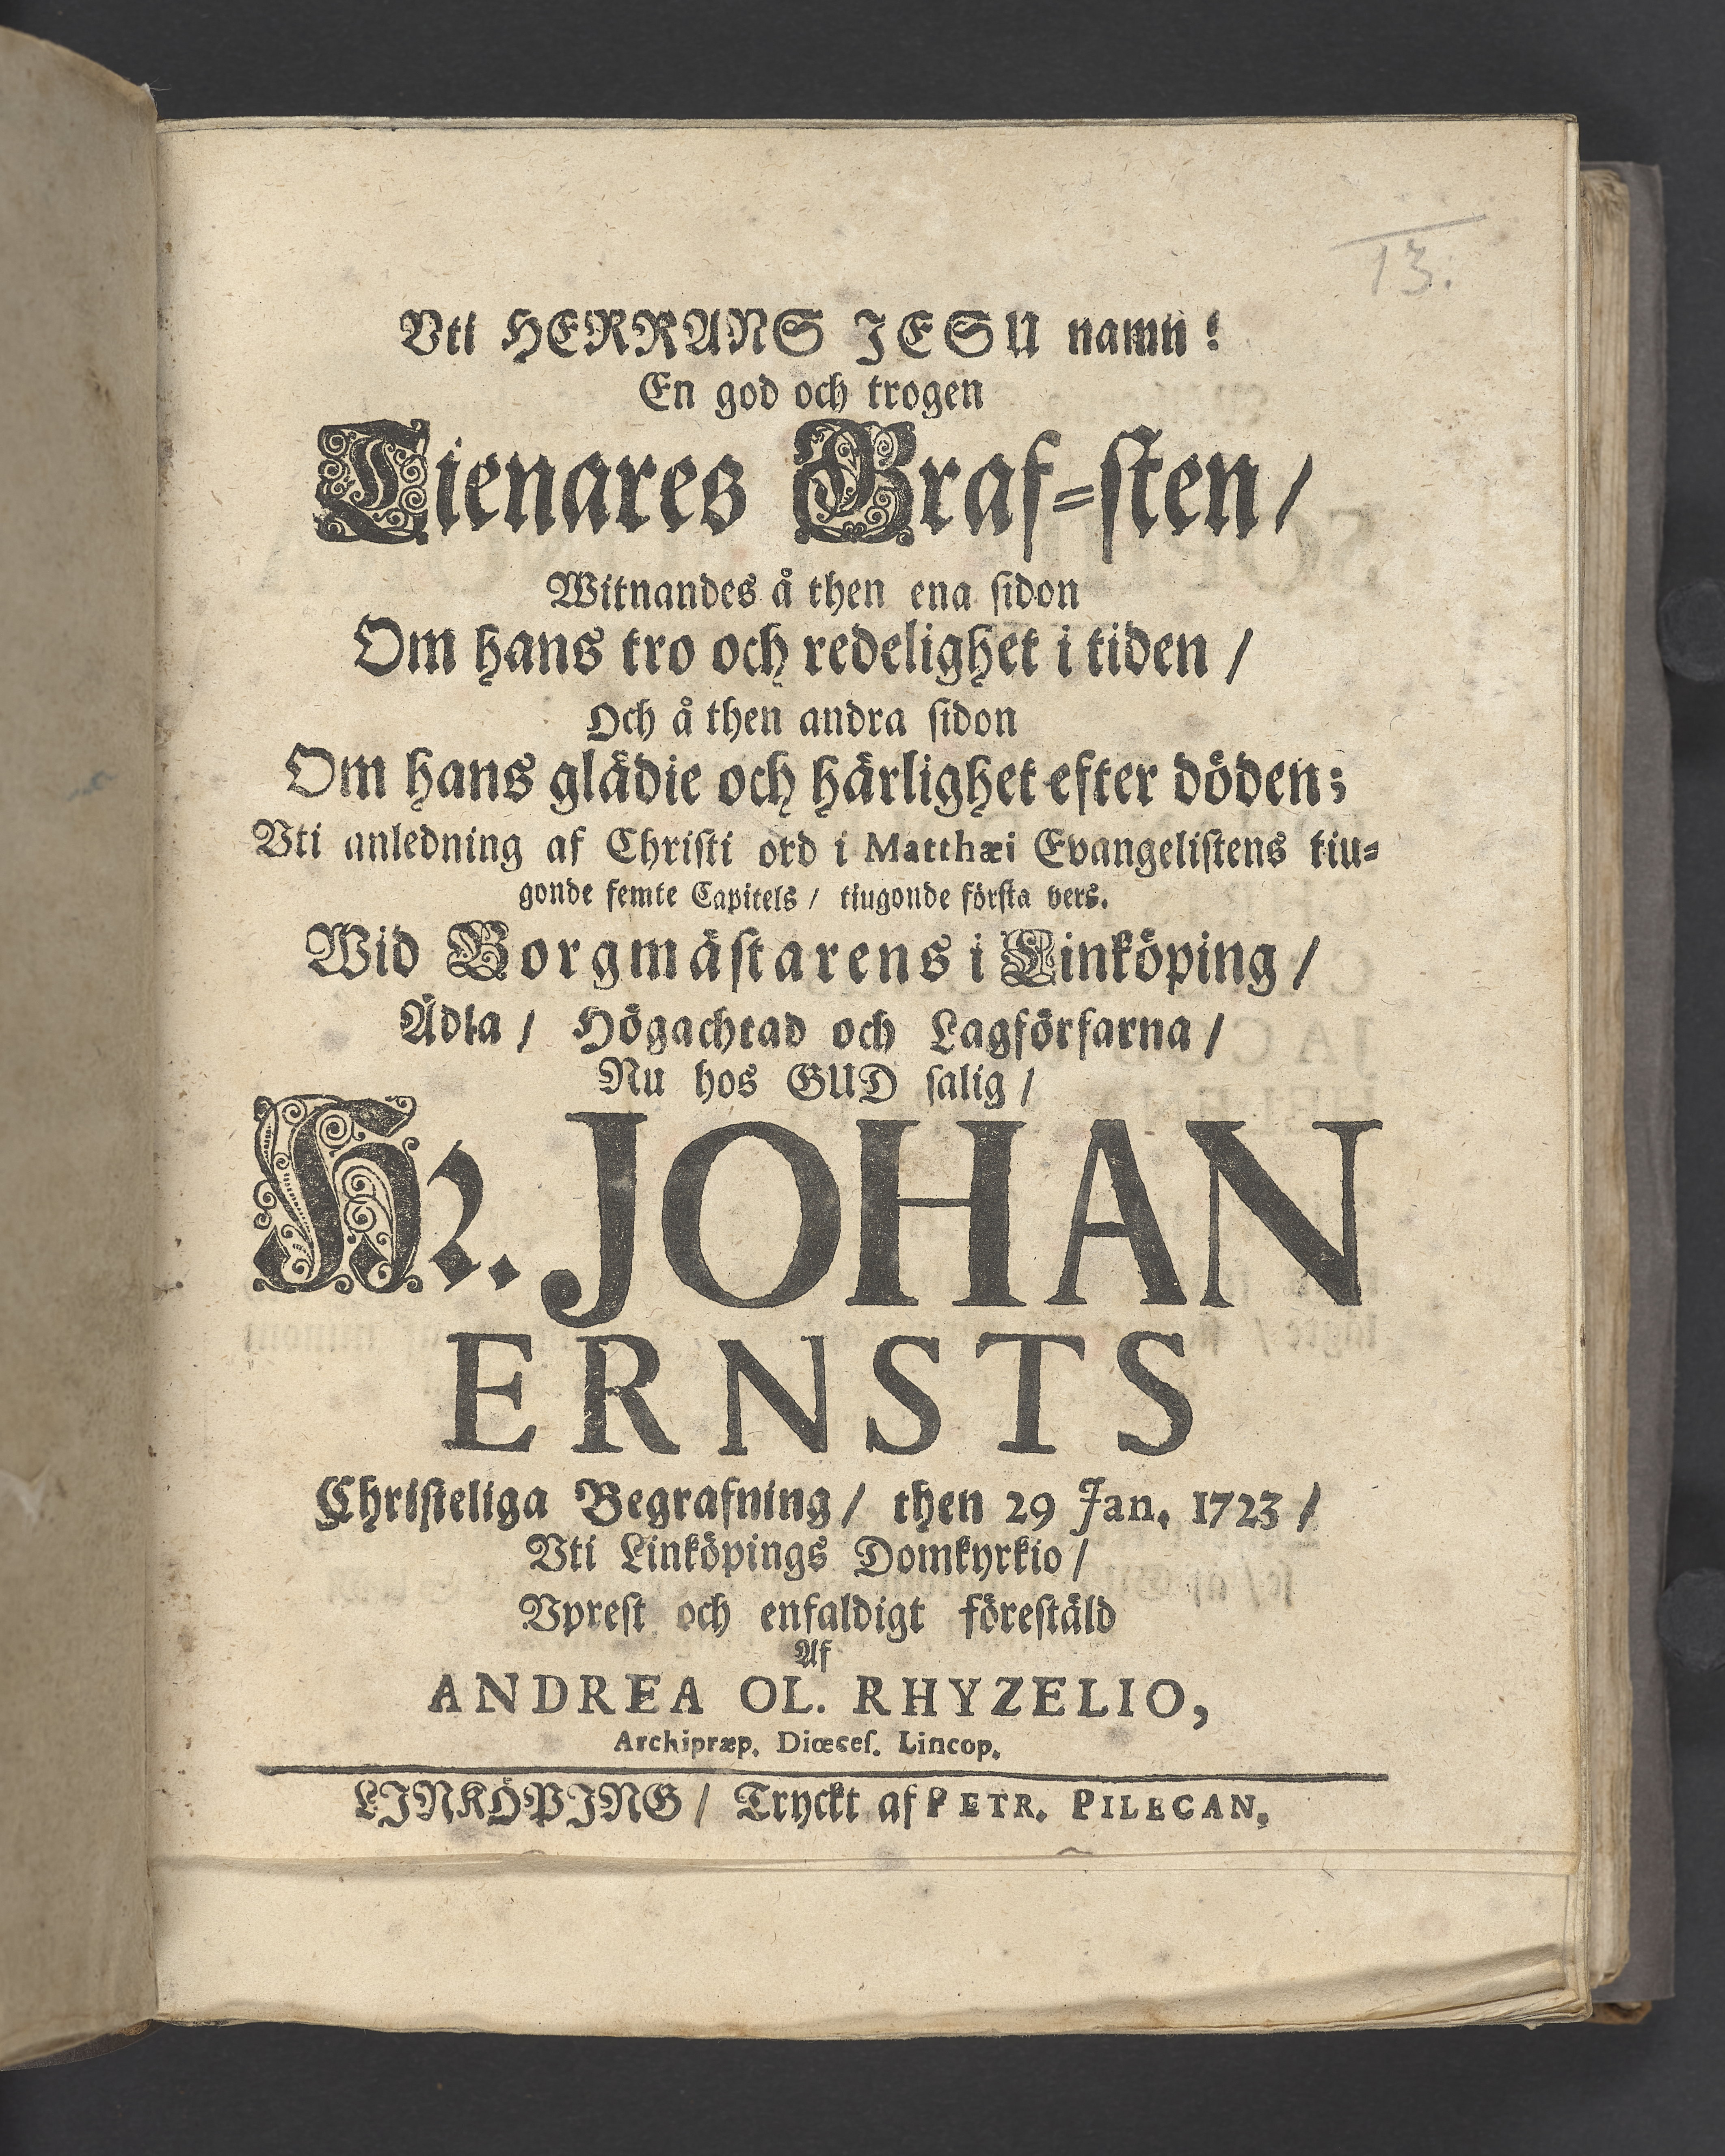 13.
Vti HERRANS JESU namn!
En god och trogen
Tienares Graf-sten/
Witnandes å then ena sidon
Om hans tro och redelighet i tiden/
Och å then andra sidon
Om hans glädie och härlighet efter döden;
Vti anledning af Christi ord i Matthæi Evangelistens tiu-
gonde femte Capitels/ tiugonde första vers.
Wid Borgmästarens i Linköping/
Ädla/ Högachtad och Lagförfarna/
Nu hos GUD salig/
Hr. JOHAN
ERNSTS
Christeliga Begrafning/ then 29 Jan. 1723/
Vti Linköpings Domkyrkio/
Vprest och enfaldigt förestäld
Af
ANDREA OL. RHYZELIO,
Archipræp. Diœces. Lincop.
LINKÖPING/ Tryckt af PETR. PILECAN.